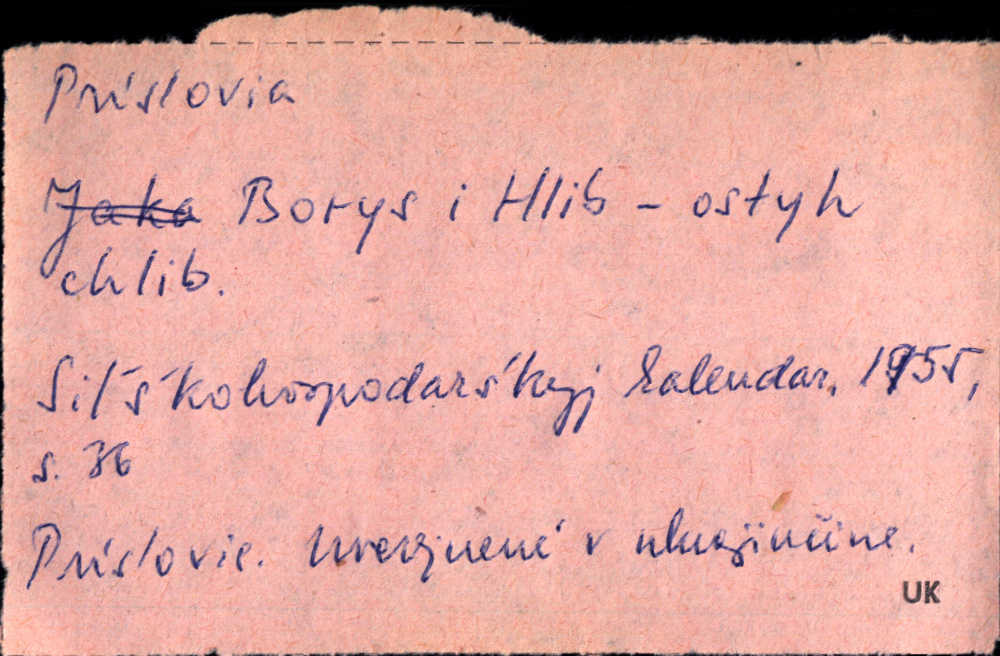 Príslovia
Jaka Borys i Hlib - ostyh
chlib.
Siľśkohospodarśkyj kalendar, 1955,
s. 36
Príslovie. Uverejnené v ukrajinčine.
UK